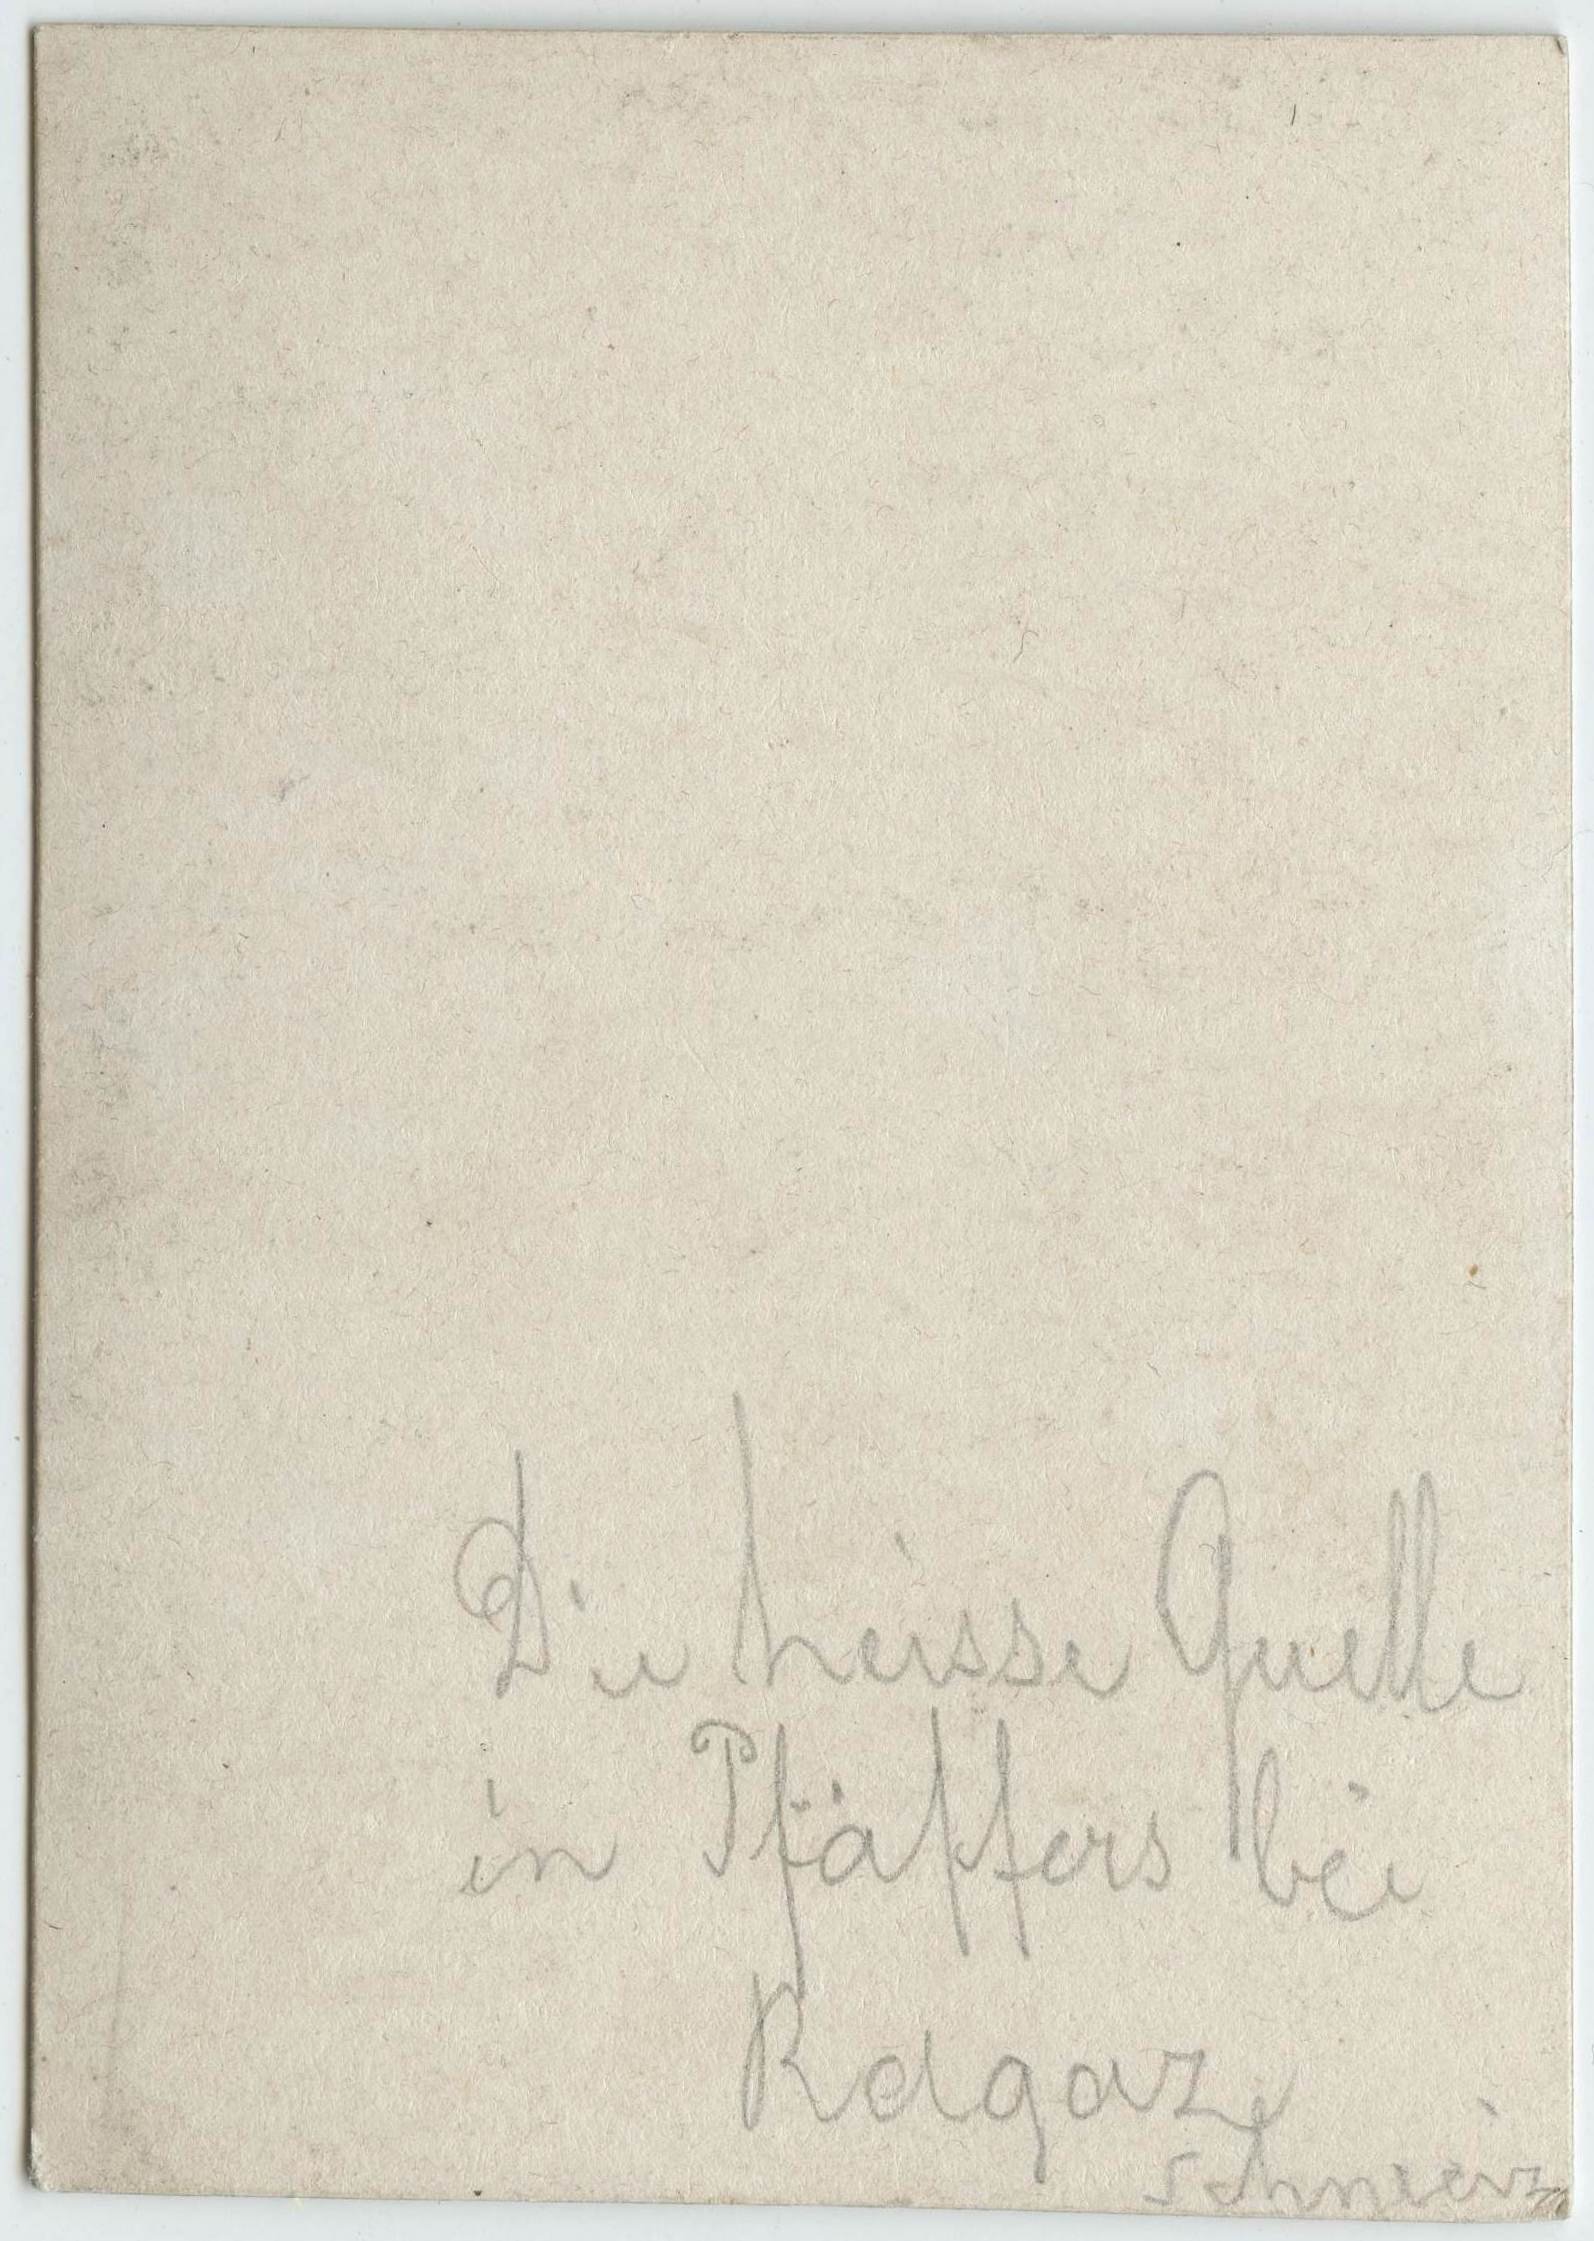 Die heisse Quelle
in Pfäffers bei
Ragaz
Schweiz